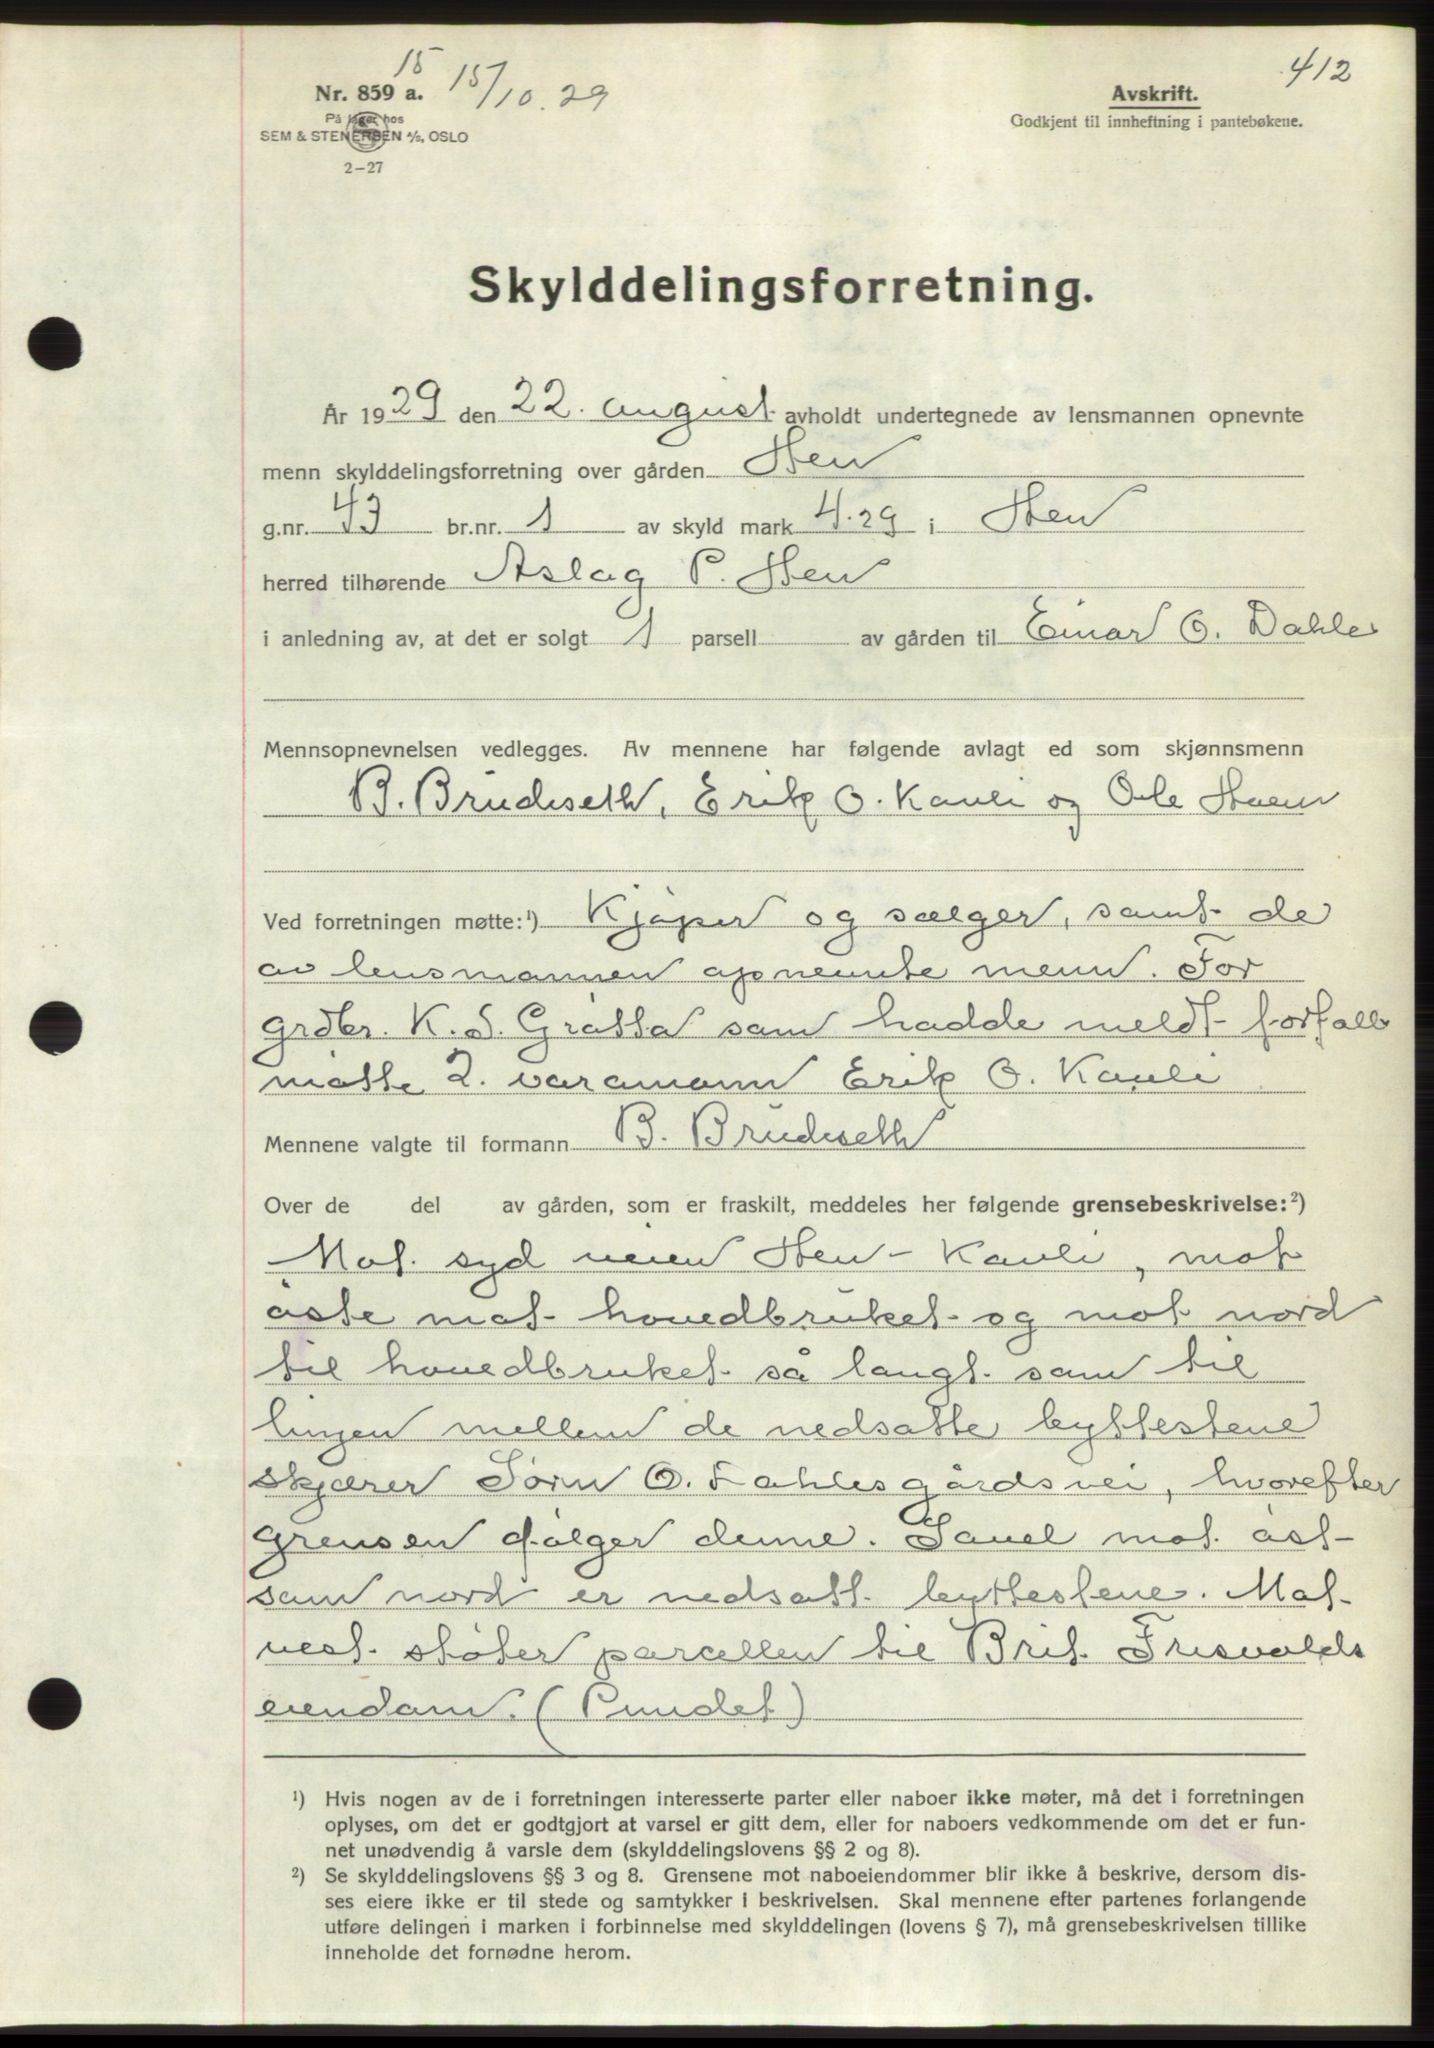 412
15
Nr. 859 a. 15/10.29
På lager hos
SEM & STENERSEN A/S, OSLO
2-27
Avskrift.
Godkjent til innheftning i pantebøkene.
Skylddelingsforretning.
År 1929 den 22. august avholdt undertegnede av lensmannen opnevnte
menn skylddelingsforretning over gården Hen
g.nr. 43 br.nr. 1 av skyld mark 4.29 i Hen
herred tilhørende Aslag P. Hen
i anledning av, at det er solgt 1 parsell av gården til Einar O. Dahle
Mennsopnevnelsen vedlegges. Av mennene har følgende avlagt ed som skjønnsmenn
B. Brudeseth, Erik O. Kavli og Ole
Ved forretningen møtte:¹) Kjøper og sælger, samt de
av lensmannen opnevnte menn. For
grdbr. K. S. Grøtta som hadde meldt forfall
møtte 2. varamann Erik O. Kavli
Mennene valgte til formann B. Brudeseth
Over de del av gården, som er fraskilt, meddeles her følgende grensebeskrivelse:²)
Mot syd veien Hen - Kavli, mot
øste mot hovedbruket og mot nord
til hovedbruket så langt som til
linjen mellem de nedsatte byttestene
skjærer Søren O. Dahles gårdsvei, hvorefter
grensen følger denne. Savel mot øst
som nord er nedsatt byttestene. Mot
vest støter parcellen til Brit Frisvolds
eiendom. (Pundet)
¹) Hvis nogen av de i forretningen interesserte parter eller naboer ikke møter, må det i forretningen
oplyses, om det er godtgjort at varsel er gitt dem, eller for naboers vedkommende om det er fun-
net unødvendig å varsle dem (skylddelingslovens §§ 2 og 8).
²) Se skylddelingslovens §§ 3 og 8. Grensene mot naboeiendommer blir ikke å beskrive, dersom dis-
ses eiere ikke er til stede og samtykker i beskrivelsen. Skal mennene efter partenes forlangende
utføre delingen i marken i forbinnelse med skylddelingen (lovens § 7), må grensebeskrivelsen tillike
inneholde det fornødne herom.